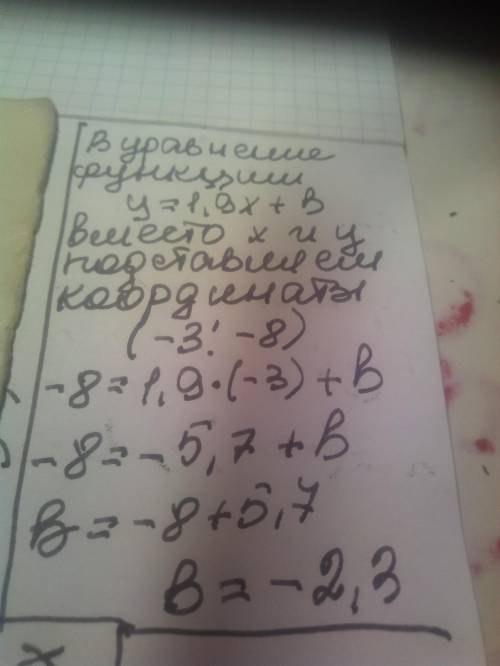 В уравнение
функции
y = 1,9x + в
вместо x и y
подставляем
координаты
(-3; -8)
-8 = 1,9·(-3) + в
-8 = -5,7 + в
в = -8 + 5,7
в = -2,3
x